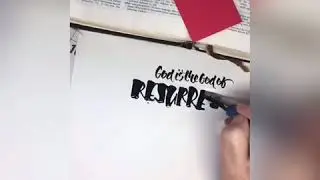 God is the God of
RESURRE